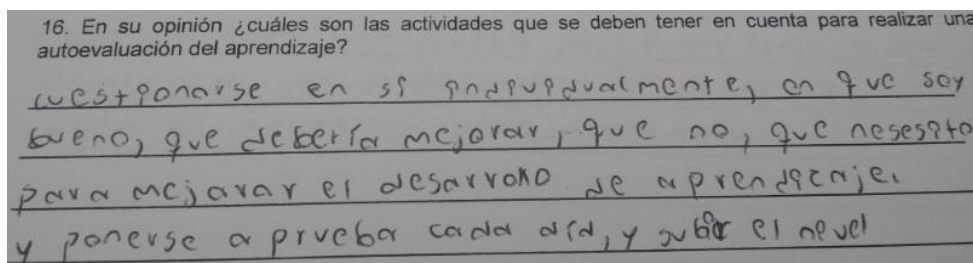 16. En su opinión ¿cuáles son las actividades que se deben tener en cuenta para realizar una
autoevaluación del aprendizaje?
cuestionarse en si individualmente, en que soy
bueno, que debería mejorar, que no, que nesesita
para mejarar el desarrollo de aprendizaje.
y ponerse a prueba cada día, y subir el nevel